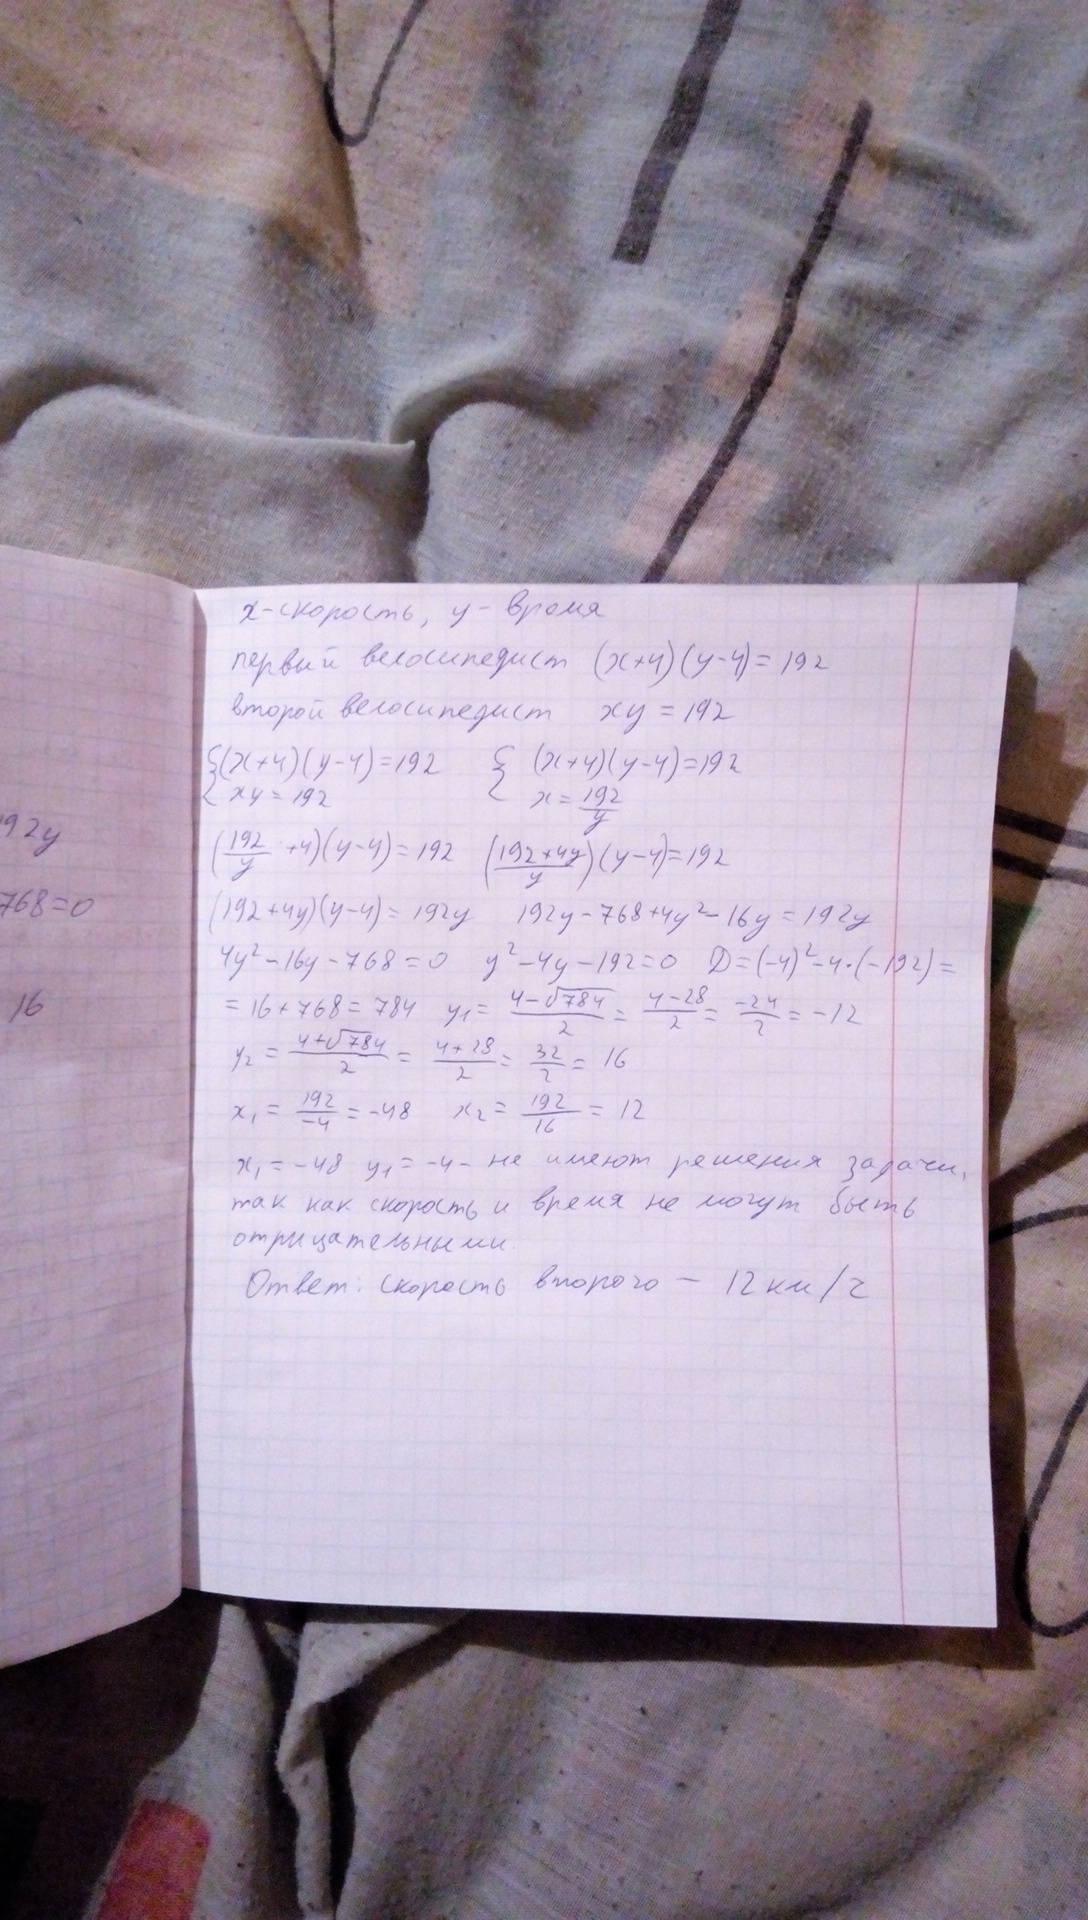 x - скорость, y - время
первый велосипедист (x+4)(y-4)=192
второй велосипедист xy = 192
{(x+4)(y-4)=192 { (x+4)(y-4)=192
xy = 192 x = 192/y
(192/y +4)(y-4)=192 (192+4y/y)(y-4)=192
(192+4y)(y-4)=192y 192y-768+4y²-16y=192y
4y²-16y-768=0 y²-4y-192=0 D=(-4)²-4·(-192)=
= 16+768=784 y₁= 4-√784/2 = 4-28/2 = -24/2 = -12
y₂ = 4+√784/2 = 4+28/2 = 32/2 = 16
x₁ = 192/-4 = -48 x₂ = 192/16 = 12
x₁ = -48 y₁ = -4 - не имеют решения задачи,
так как скорость и время не могут быть
отрицательными.
Ответ: скорость второго - 12 км/ч
192y
768=0
16